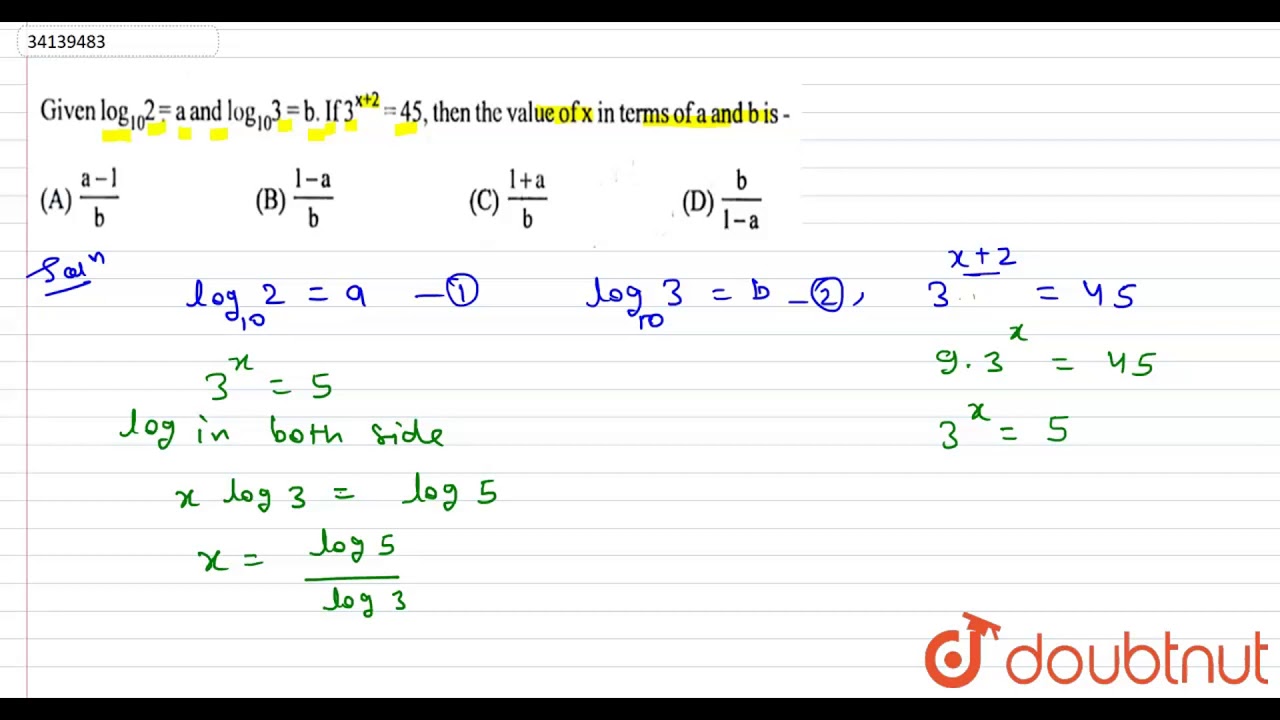 34139483
Given log₁₀2 = a and log₁₀3 = b. If 3ˣ⁺² = 45, then the value of x in terms of a and b is -
(A) a-1/b (B) 1-a/b (C) 1+a/b (D) b/1-a
Solⁿ
log₁₀ 2 = a -① log₁₀ 3 = b -②, 3ˣ⁺² = 45
9.3ˣ = 45
3ˣ = 5
3ˣ = 5
log in both side
x log 3 = log 5
x = log 5/log 3
doubtnut